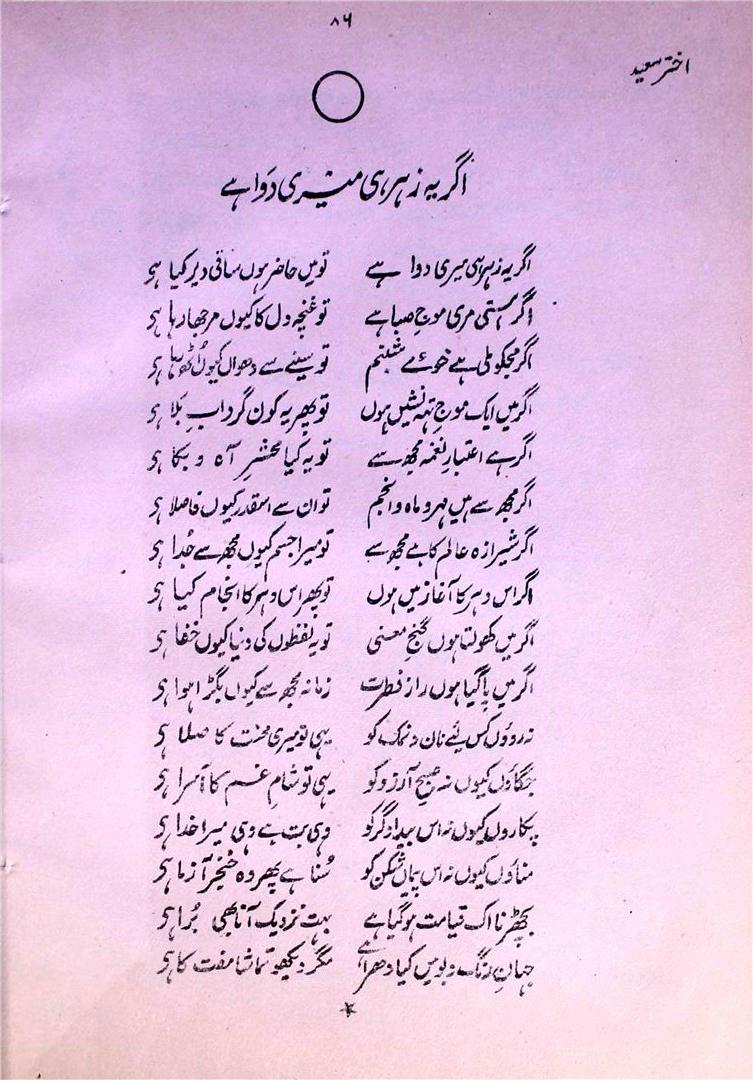 ۸۶
اختر سعید
اگر یہ زہر ہی میری دوا ہے
اگر یہ زہر ہی میری دوا ہے تو میں حاضر ہوں ساقی دیر کیا ہے
اگر ہستی مری موجِ صبا ہے تو غنچہ دل کا کیوں مرجھا رہا ہے
اگر مجکو ملی ہے خوئے شبنم تو سینے سے دھواں کیوں اُٹھ رہا ہے
اگر میں ایک موجِ تہہ نشیں ہوں تو پھر یہ کون گردابِ بَلا ہے
اگر ہے اعتبارِ نغمہ مجھ سے تو یہ کیا محشرِ آہ و بکا ہے
اگر مجھ سے ہیں مہر و ماہ و انجم تو ان سے اسقدر کیوں فاصلا ہے
اگر شیرازہ عالم کا ہے مجھ سے تو میرا جسم کیوں مجھ سے جُدا ہے
اگر اس دہر کا آغاز میں ہوں تو پھر اس دہر کا انجام کیا ہے
اگر میں کھولتا ہوں گنجِ معنی تو یہ لفظوں کی دنیا کیوں خفا ہے
اگر میں پا گیا ہوں رازِ فطرت زمانہ مجھ سے کیوں بگڑا ہوا ہے
نہ روؤں کس لئے نان و نمک کو یہی تو میری محنت کا صلا ہے
جگاؤں کیوں نہ صبحِ آرزو کو یہی تو شامِ غم کا آسرا ہے
پکاروں کیوں نہ اس بیدادگر کو وہی بت ہے وہی میرا خدا ہے
مناؤں کیوں نہ اس پیماں شکن کو سُنا ہے پھر وہ خنجر آزما ہے
بچھڑنا اک قیامت ہو گیا ہے بہت نزدیک آنا بھی بُرا ہے
جہانِ رنگ و بو میں کیا دھرا ہے مگر دیکھو تماشا مفت کا ہے